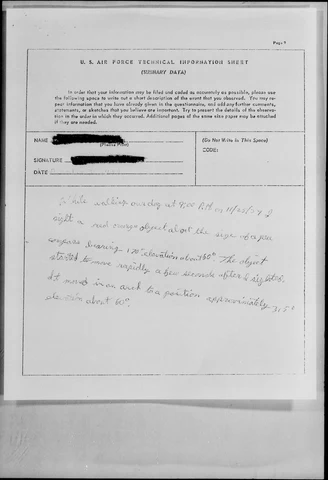 Page 5
U. S. AIR FORCE TECHNICAL INFORMATION SHEET
(SUMMARY DATA)
In order that your information may be filed and coded as accurately as possible, please use
the following space to write out a short description of the event that you observed. You may re-
peat information that you have already given in the questionnaire, and add any further comments,
statements, or sketches that you believe are important. Try to present the details of the observa-
tion in the order in which they occurred. Additional pages of the same size paper may be attached
if they are needed.
NAME
(Please Print)
SIGNATURE
DATE
(Do Not Write in This Space)
CODE:
While walking our dog at 9:00 P.M. on I
sight a red range object about the size of a pea
compass bearing 120° elevation about 60°. The object
started to move rapidly a few seconds after I sighted.
It moved in an arch to a position approximately 315°
elevation about 60°.